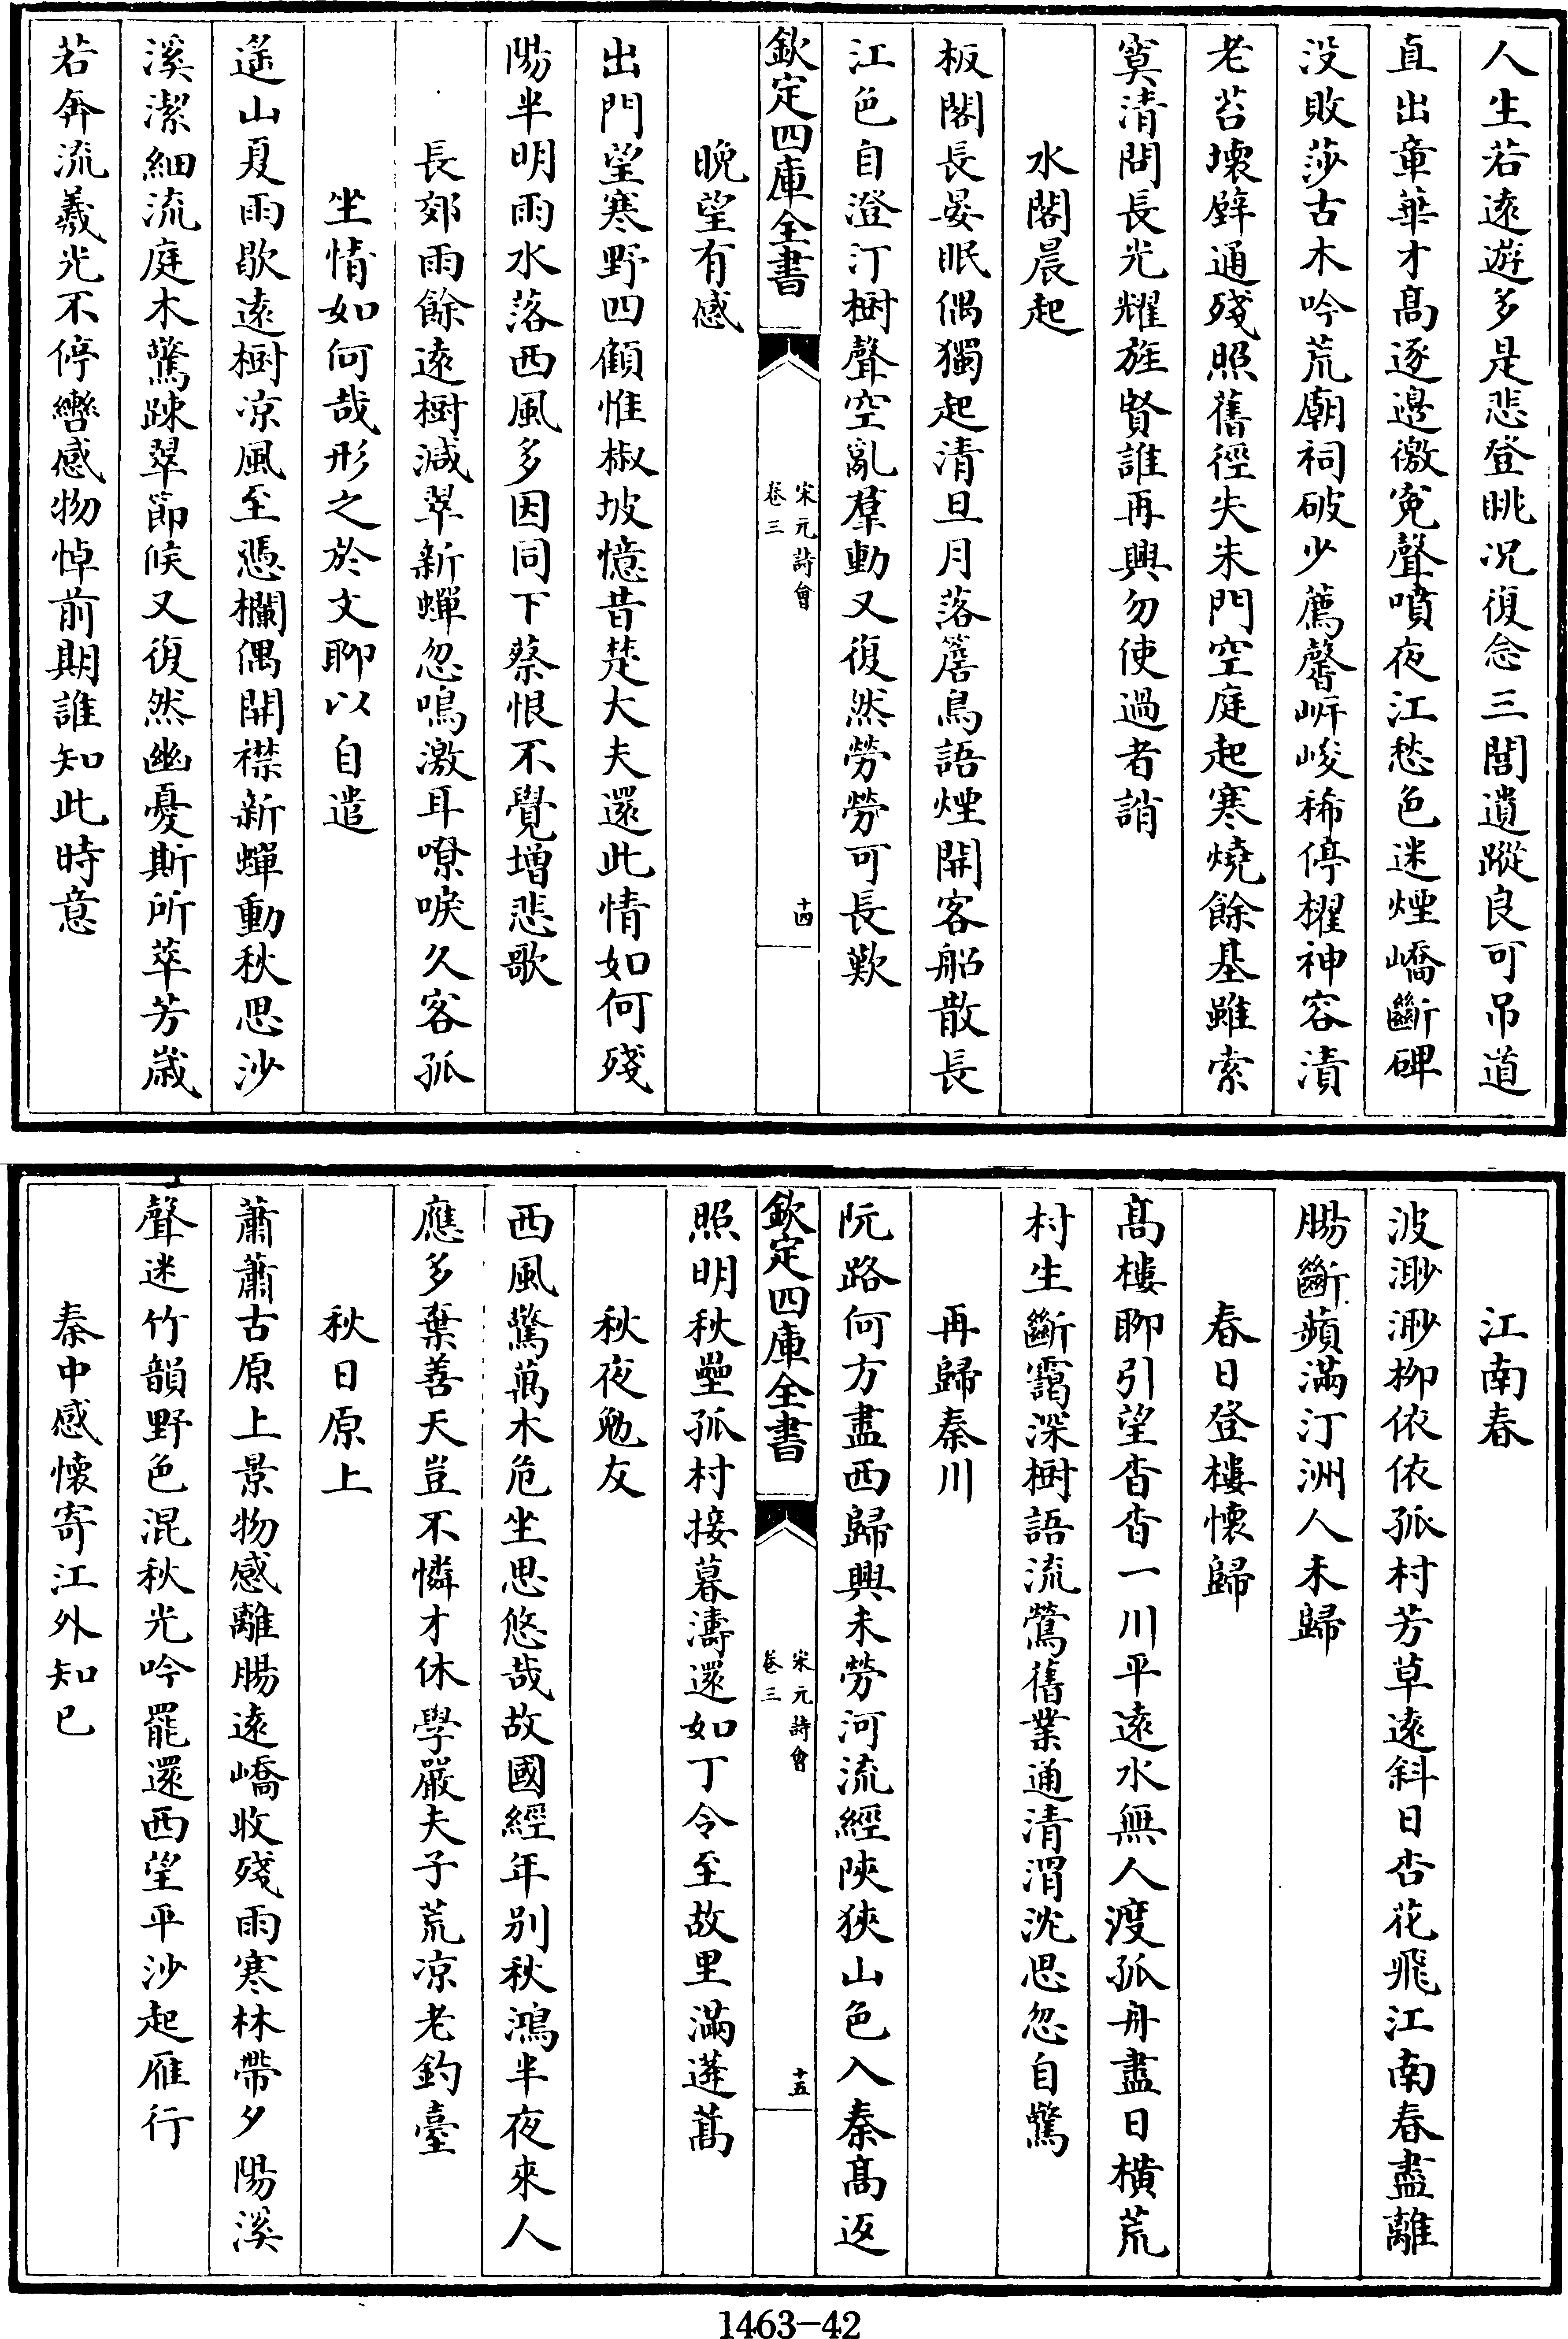 人生若遠遊多是悲登眺况復念三閭遺蹤良可吊道
直出章華才髙逐邊徼寃聲噴夜江愁色迷煙嶠斷碑
没敗莎古木吟荒廟祠破少薦馨岍峻稀停櫂神容漬
老苔壊壁通殘照舊徑失朱門空庭起寒燒餘基雖索
寞清問長光耀旌賢誰再興勿使過者誚
水閣晨起
板閣長晏眠偶獨起清旦月落簷鳥語煙開客船散長
江色自澄汀樹聲空亂羣動又復然勞勞可長歎
欽定四庫全書
宋元詩會
卷三
十四
晚望有感
出門望寒野四顧惟椒坡憶昔楚大夫還此情如何殘
陽半明雨水落西風多因同下蔡恨不覺增悲歌
長郊雨餘遠樹減翠新蟬忽鳴激耳嘹唳久客孤
坐情如何哉形之於文聊以自遣
遥山夏雨歇遠樹凉風至憑欄偶開襟新蟬動秋思沙
溪潔細流庭木驚踈翠節候又復然幽憂斯所萃芳歳
若奔流羲光不停轡感物悼前期誰知此時意
江南春
波渺渺柳依依孤村芳草遠斜日杏花飛江南春盡離
腸斷蘋滿汀洲人未歸
春日登樓懷歸
髙樓聊引望杳杳一川平逺水無人渡孤舟盡日横荒
村生斷靄深樹語流鶯舊業通清渭沈思忽自驚
再歸秦川
阮路何方盡西歸興未勞河流經陜狹山色入秦髙返
欽定四庫全書
宋元詩會
卷三
十五
照明秋壘孤村接暮濤還如丁令至故里滿蓬蒿
秋夜勉友
西風驚萬木危坐思悠哉故國經年别秋鴻半夜來人
應多棄善天豈不憐才休學嚴夫子荒凉老釣臺
秋日原上
蕭蕭古原上景物感離腸遠嶠收殘雨寒林帶夕陽溪
聲迷竹韻野色混秋光吟罷還西望平沙起雁行
秦中感懷寄江外知已
1463-42